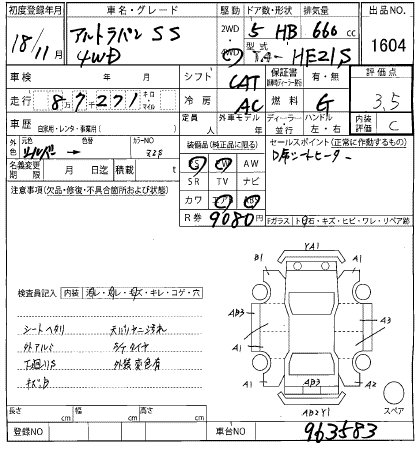 初度登録年月 車名・グレード 駆動 ドア数・形状 排気量 出品NO.
18/11月 アルトラパン SS 4WD 2WD 4WD 5 HB 660 cc 1604
型式 HE21S
車検 年 月 シフト CAT 保証書 有・無 評価点
走行 87271 キロ・マイル 冷房 AC 燃料 G 3.5
車歴 自家用・レンタ・事業用( ) 定員 人 外車モデル 年 ディーラー・並行 ハンドル 左・右 内装評価 C
外色 シルバー 色替 カラーNO Z2S 装備品(純正品に限る) セールスポイント(正常に作動するもの)
名義変更期限 月 日迄 積載 t PS PW AW D席シートヒーター
注意事項(欠品・修復・不具合箇所および状態) SR TV ナビ
カワ エアB ABS
R券 9080円 Fガラス トビ石・キズ・ヒビ・ワレ・リペア跡
YA1
B1 A1
AB3 A3
A1 A1
A1 AB3 A2
AB2Y1
スペア
検査員記入 内装 汚レ・スレ・キズ・キレ・コゲ・穴
シートヘタリ 天バリヤニ汚れ
外アルミ S/Tタイヤ
下廻りS 外装変色有
キズB
長さ cm 幅 cm 高さ cm
登録NO 車台NO 963583